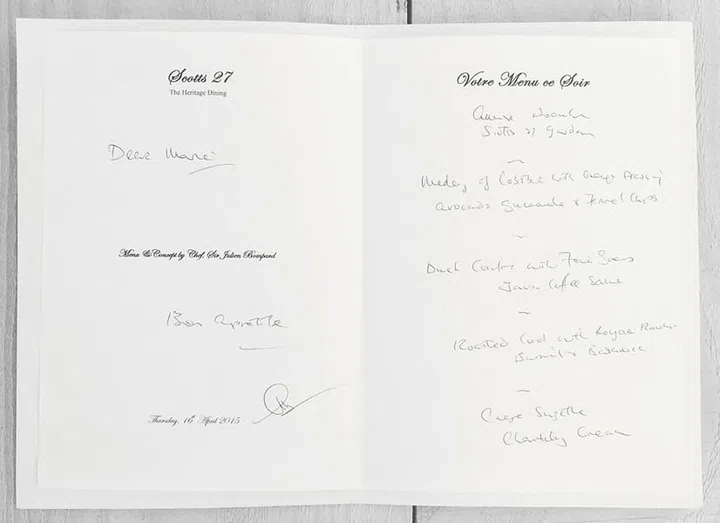 Scotts 27
The Heritage Dining
Dear Marie
Menu & Concept by Chef, Sir Julien Bompard
Bon appétite
Thursday, 16th April 2015
Votre Menu ce Soir
Scotts 27 Garden
Medley of Lobster with Orange Dressing
avocado Guacamole & Fennel Chips
Duck Confit with Foie Gras
Java Coffee Sauce
Roasted Cod with
Crepe Suzette
Chantilly Cream